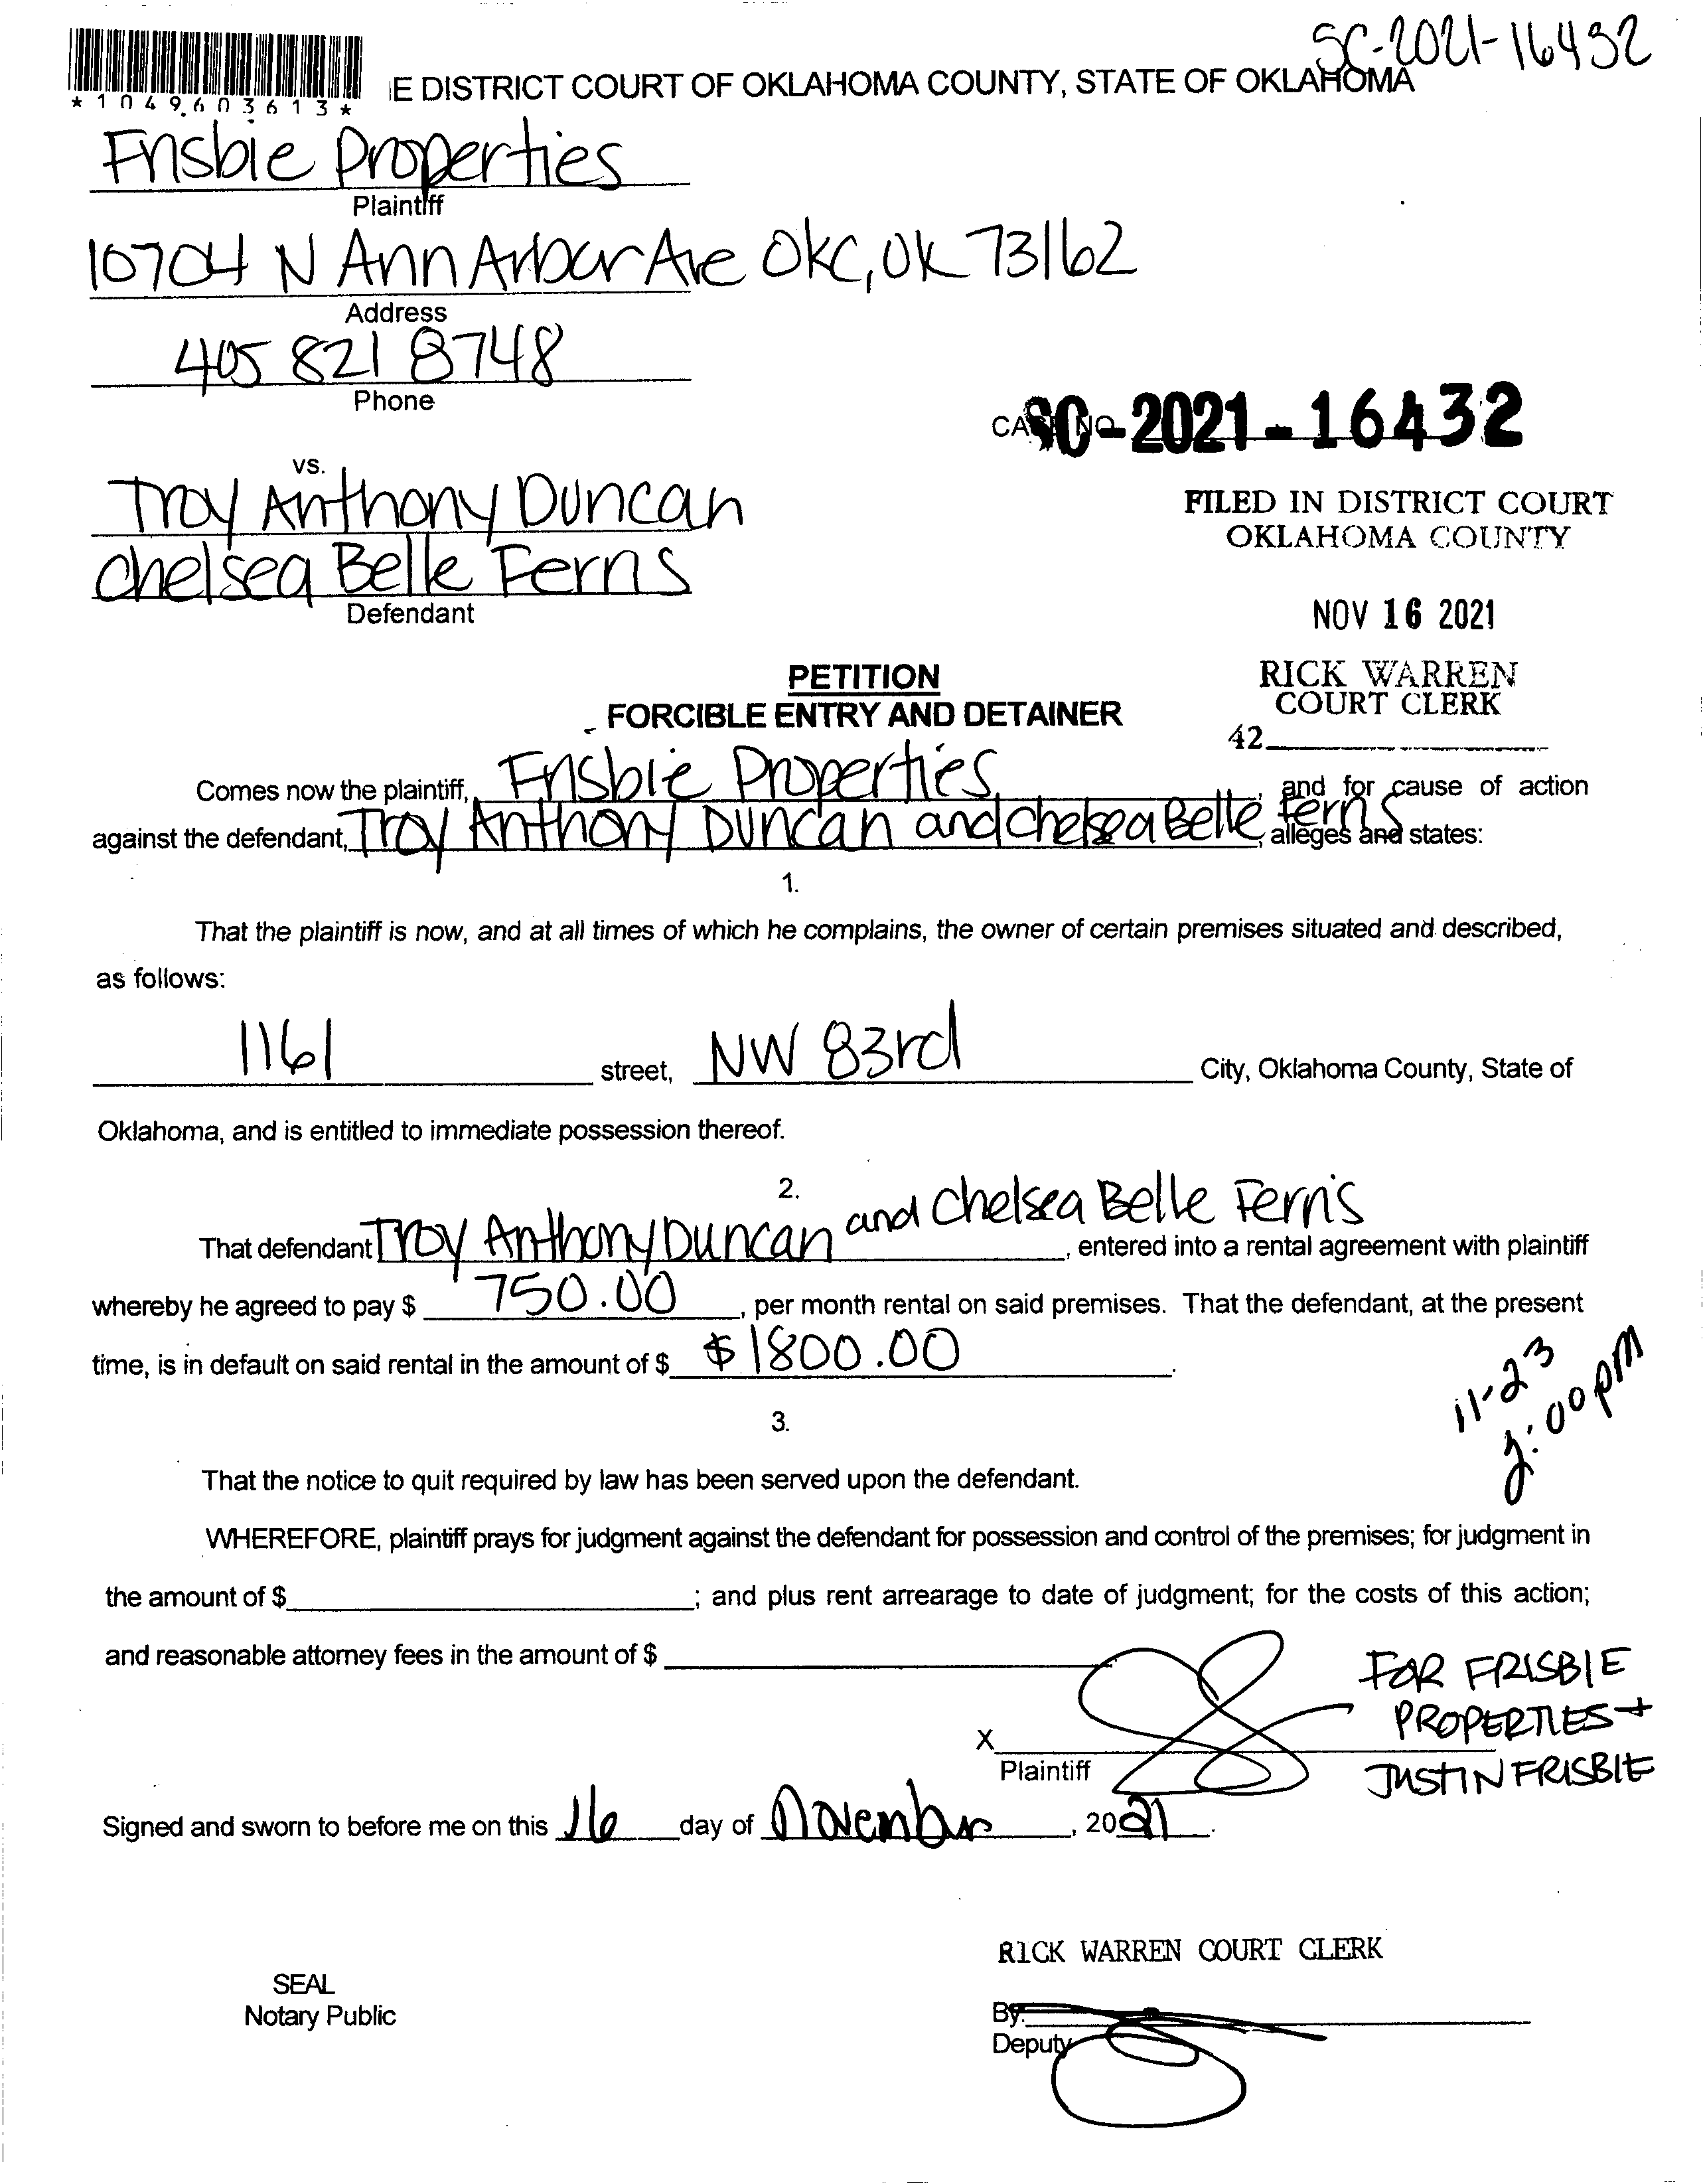 SC-2021-16432
*1049603613*
E DISTRICT COURT OF OKLAHOMA COUNTY, STATE OF OKLAHOMA
Frisbie Properties
Plaintiff
10704 N Ann Arbor Ave OKC, OK 73162
Address
405 821 8748
Phone
CASE NO. SC-2021-16432
vs.
Troy Anthony Duncan
Chelsea Belle Ferris
Defendant
FILED IN DISTRICT COURT
OKLAHOMA COUNTY
NOV 16 2021
RICK WARREN
COURT CLERK
42
PETITION
FORCIBLE ENTRY AND DETAINER
Comes now the plaintiff, Frisbie Properties, and for cause of action
against the defendant, Troy Anthony Duncan and Chelsea Belle Ferris, alleges and states:
1.
That the plaintiff is now, and at all times of which he complains, the owner of certain premises situated and described,
as follows:
1161 street, NW 83rd City, Oklahoma County, State of
Oklahoma, and is entitled to immediate possession thereof.
2.
That defendant Troy Anthony Duncan and Chelsea Belle Ferris, entered into a rental agreement with plaintiff
whereby he agreed to pay $ 750.00, per month rental on said premises. That the defendant, at the present
time, is in default on said rental in the amount of $ $1800.00.
11-23
2:00pm
3.
That the notice to quit required by law has been served upon the defendant.
WHEREFORE, plaintiff prays for judgment against the defendant for possession and control of the premises; for judgment in
the amount of $; and plus rent arrearage to date of judgment; for the costs of this action;
and reasonable attorney fees in the amount of $.
FOR FRISBIE
PROPERTIES +
JUSTIN FRISBIE
X
Plaintiff
Signed and sworn to before me on this 16 day of November, 2021.
RICK WARREN COURT CLERK
SEAL
Notary Public
By:
Deputy